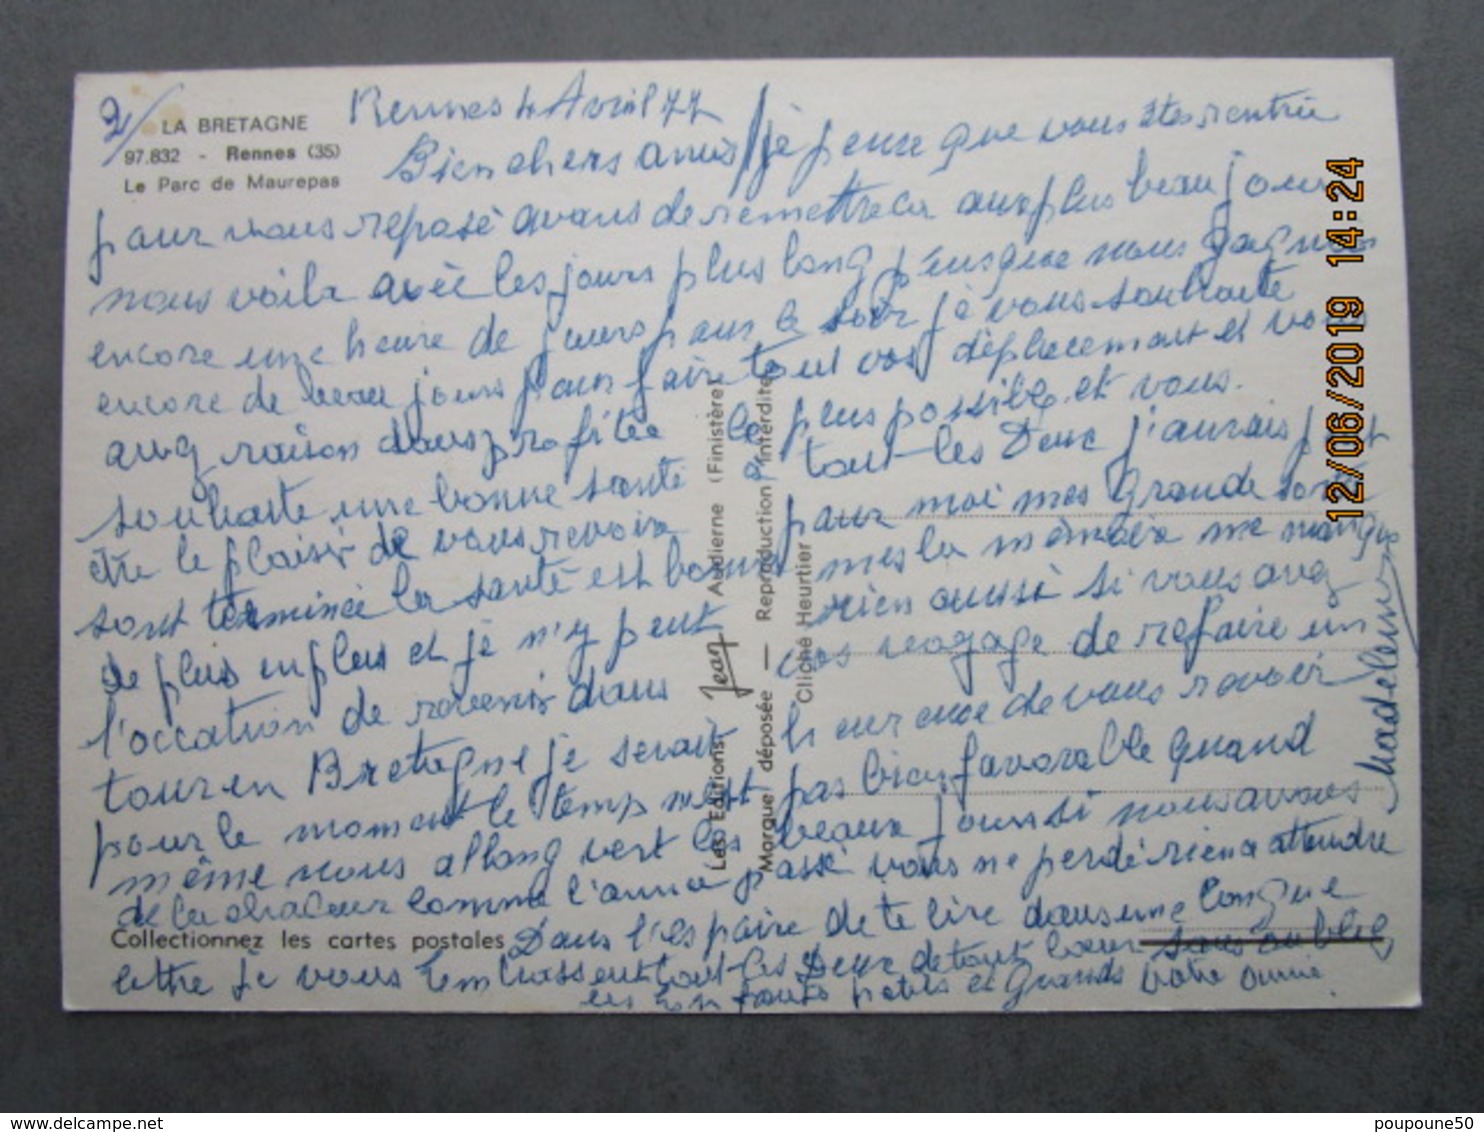 2/
LA BRETAGNE
97.832 - Rennes (35)
Le Parc de Maurepas
Rennes 4 Avril 77
Bien chers amis je pense que vous êtes rentrée
pour vous reposé avans de remettre ca aux plus beau jour
nous voila avèc les jours plus long puisque nous gagnons
encore une heure de jours pour le soir je vous souhaite
encore de beau jours pour faire tout vos déplacemant et vous
avez raison dans profitée le plus possible et vous
souhaite une bonne santé a tout les Deux j'aurais peut
être le plaisir de vous revoir pour moi mes Grande sorté
sont terminée la santé est bonne mes la mémoire me manque
de plus en plus et je n'y peut rien aussi si vous avez
l'occation de revenir dans vos voyage de refaire un
tour en Bretagne je serait heureuse de vous revoir
pour le moment le temp n'est pas bien favorable quand
même nous allong vert les beaux jours si nous avons
de la chaleur comme l'anné passé vous ne perdé rien a attendre
Dans l'espaire de te lire dans une longue
lettre je vous embrassent tout les Deux de tout cœur sans oublié
les enfants petits et Grands votre amie
Madeleine
Collectionnez les cartes postales
Les Editions Jean Audierne (Finistère)
Marque déposée — Reproduction interdite
Cliché Heurtier
12/06/2019 14:24
poupoune50